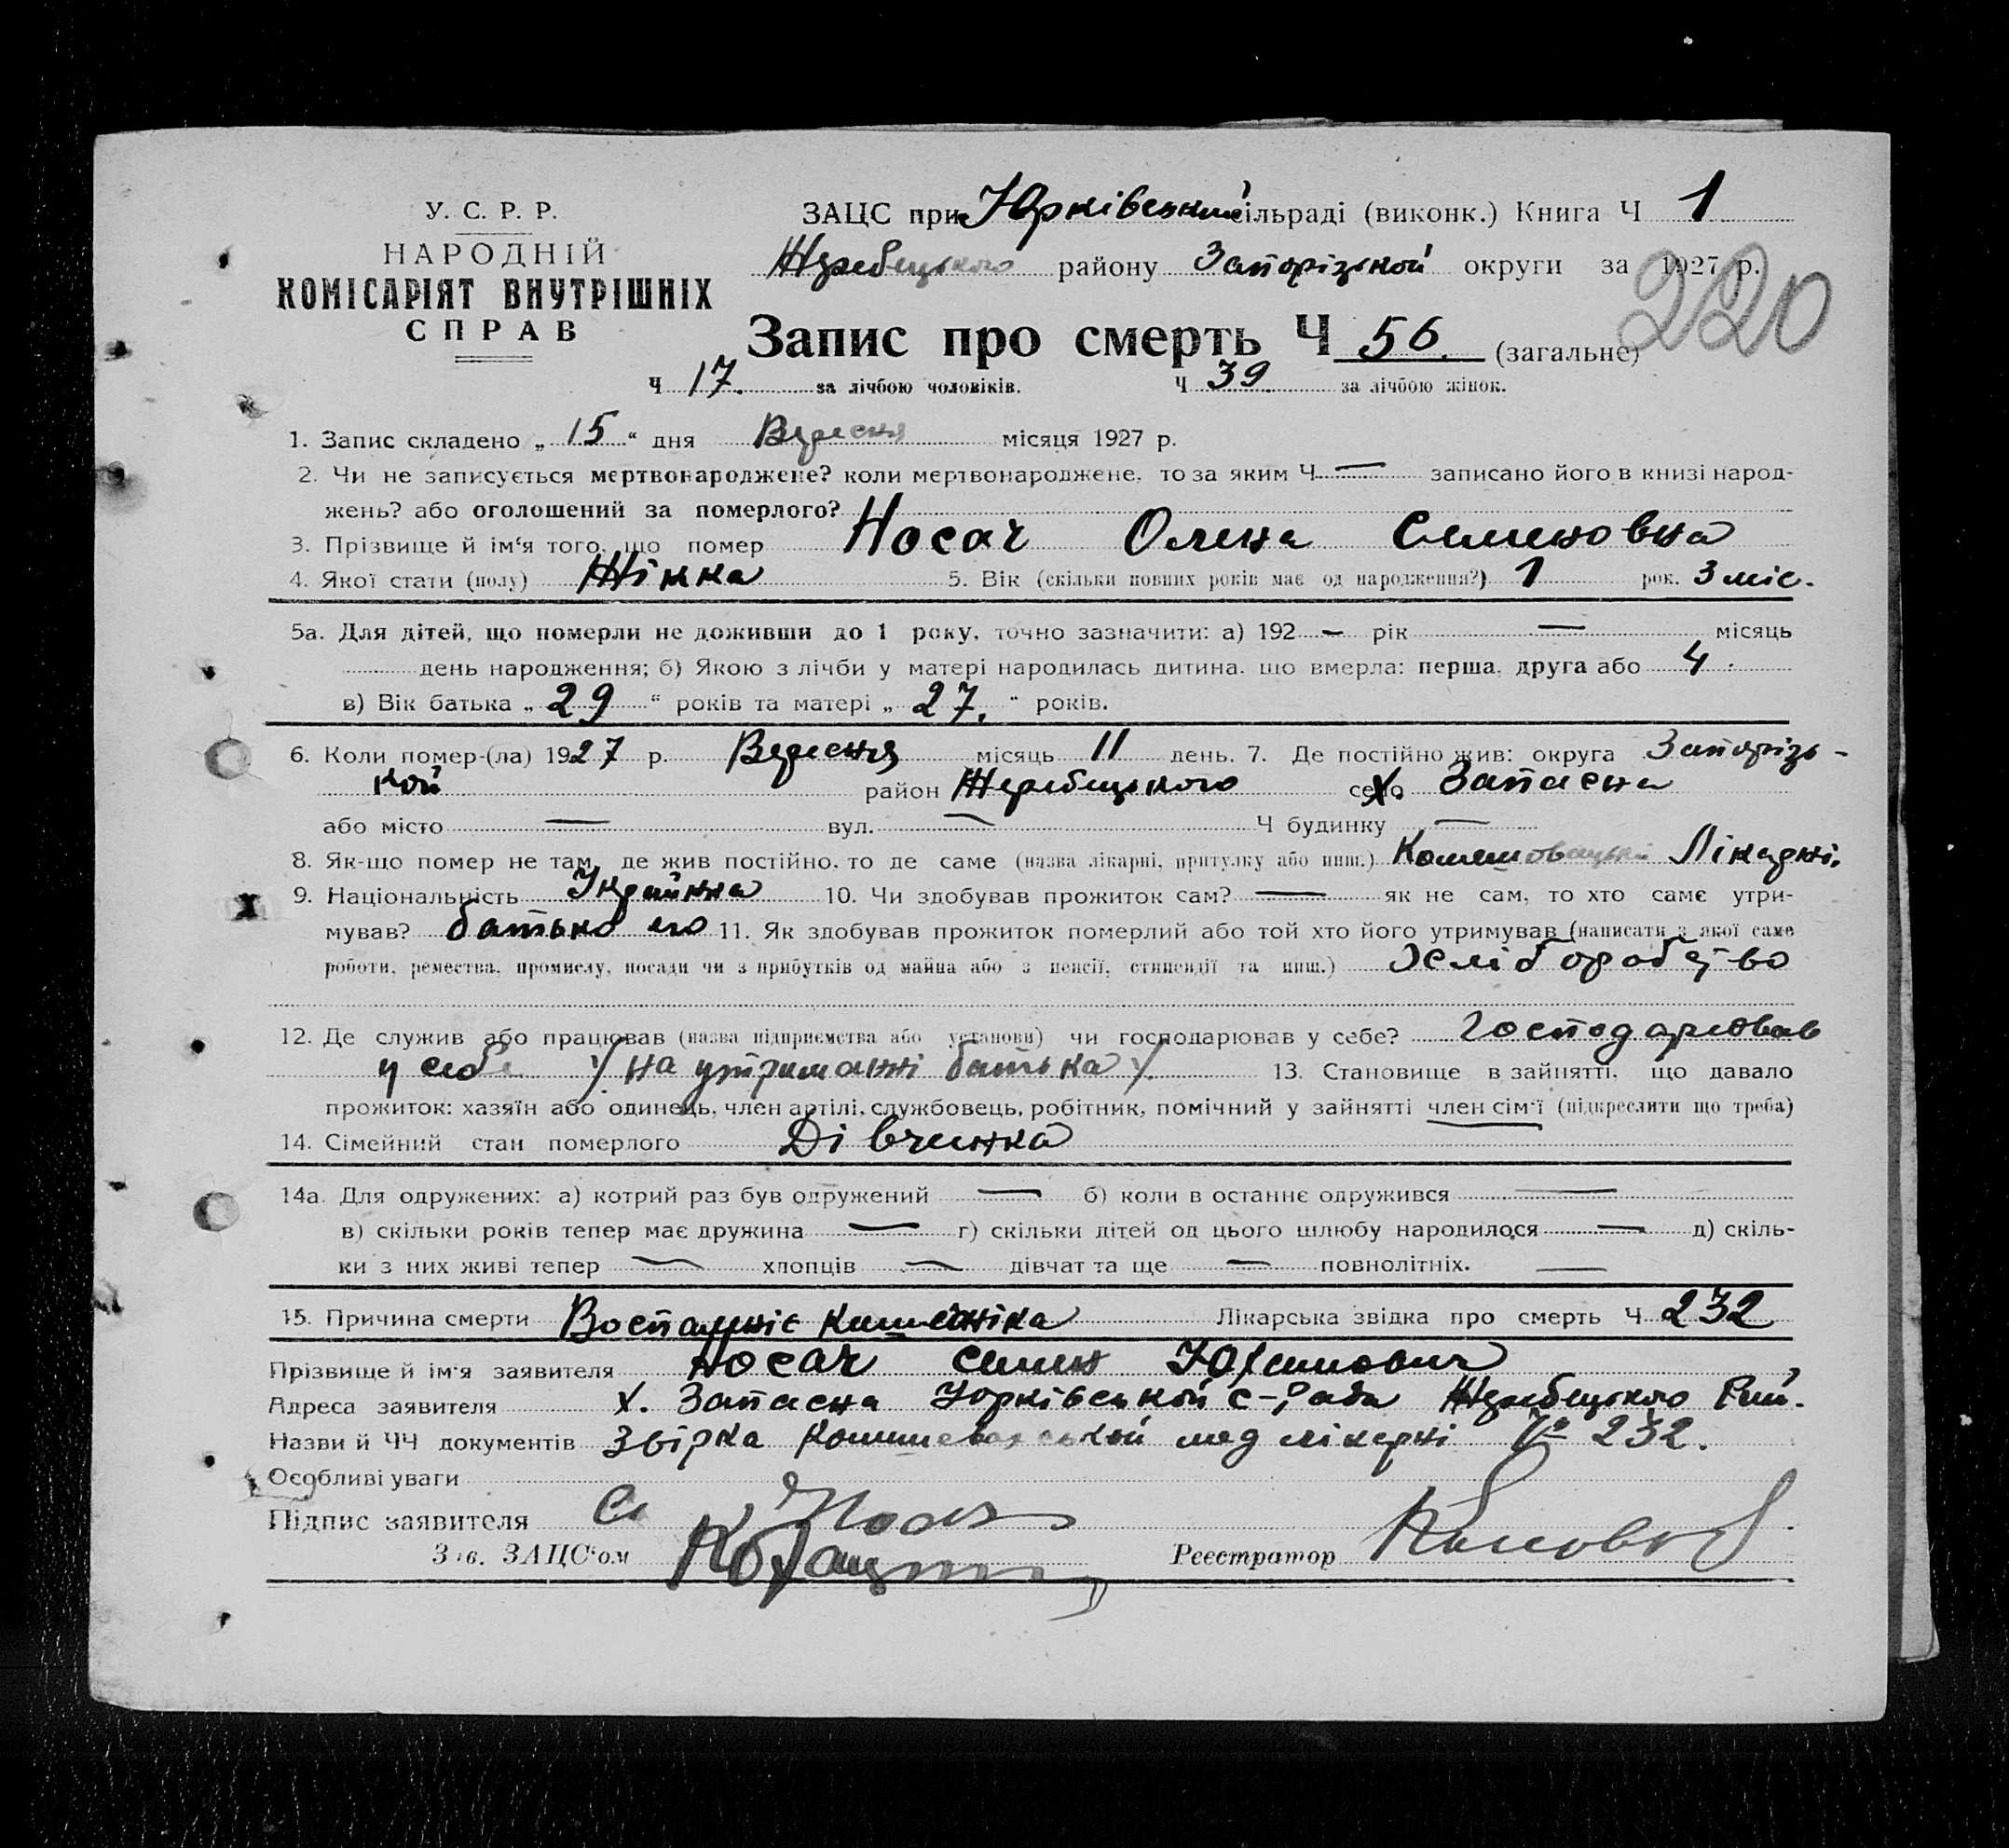 У. С. Р. Р.
НАРОДНІЙ
КОМІСАРІЯТ ВНУТРІШНІХ
СПРАВ
ЗАЦС при Юрківський сільраді (виконк.) Книга Ч 1
Жеребецького району Запорізькой округи за 1927 р.
220
Запис про смерть Ч 56. (загальне)
Ч 17. за лічбою чоловіків. Ч 39. за лічбою жінок.
1. Запис складено „ 15 “ дня Вересня місяця 1927 р.
2. Чи не записується мертвонароджене? коли мертвонароджене, то за яким Ч — записано його в книзі народ-
жень? або оголошений за померлого?
3. Прізвище й ім‘я того, що помер Носач Олена Семеновна
4. Якої стати (полу) Жінка 5. Вік (скільки повних років має од народження?) 1 рок. 3 міс.
5а. Для дітей, що померли не доживши до 1 року, точно зазначити: а) 192 — рік — місяць
день народження; б) Якою з лічби у матері народилась дитина, що вмерла: перша, друга або 4.
в) Вік батька „ 29 “ років та матері „ 27. “ років.
6. Коли помер-(ла) 1927 р. Вересня місяць 11 день. 7. Де постійно жив: округа Запорізь-
кой район Жеребецького село х. Запасна
або місто — вул. — Ч будинку —
8. Як-що помер не там, де жив постійно, то де саме (назва лікарні, притулку або инш.) Лікарні.
9. Національність Українка 10. Чи здобував прожиток сам? — як не сам, то хто саме утри-
мував? батько его 11. Як здобував прожиток померлий або той хто його утримував (написати з якої саме
роботи, ремества, промислу, посади чи з прибутків од майна або з пенсії, стипендії та инш.) Хліборобство
12. Де служив або працював (назва підприємства або установи) чи господарював у себе? Господарював
у себе /на утриманні батька/. 13. Становище в зайнятті, що давало
прожиток: хазяїн або одинець, член артілі, службовець, робітник, помічний у зайнятті член сім‘ї (підкреслити що треба)
14. Сімейний стан померлого Дівчинка
14а. Для одружених: а) котрий раз був одружений — б) коли в останнє одружився —
в) скільки років тепер має дружина — г) скільки дітей од цього шлюбу народилося — д) скіль-
ки з них живі тепер — хлопців — дівчат та ще — повнолітніх. —
15. Причина смерти Воспаленіє кишечніка Лікарська звідка про смерть Ч 232
Прізвище й ім‘я заявителя Носач Семен Юхимович
Адреса заявителя х. Запасна Юрківськой с-Рада Жеребецького Рай.
Назви й ЧЧ документів Звірка мед лікерні № 232.
Особливі уваги
Підпис заявителя С Носач
Зав. ЗАЦС‘ом
Реєстратор